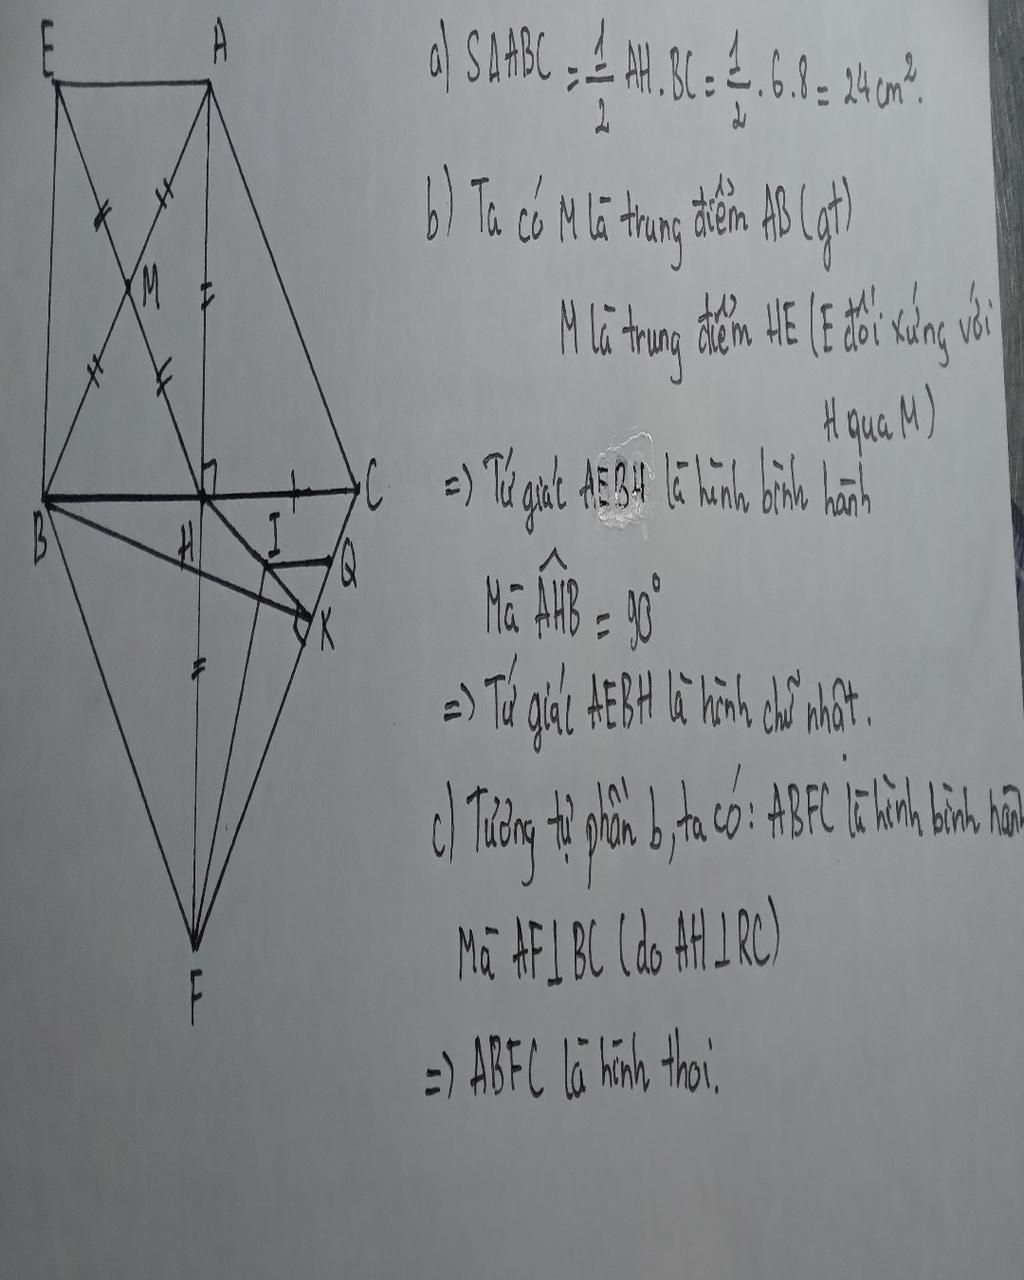 E
A
M
B
H
C
I
Q
K
F
a) SΔABC = 1/2 AH.BC = 1/2 . 6.8 = 24 cm².
b) Ta có M là trung điểm AB (gt)
M là trung điểm HE (E đối xứng với
H qua M)
=> Tứ giác AEBH là hình bình hành
Mà AHB = 90°
=> Tứ giác AEBH là hình chữ nhật.
c) Tương tự phần b, ta có: ABFC là hình bình hành
Mà AF⊥BC (do AH⊥BC)
=> ABFC là hình thoi.